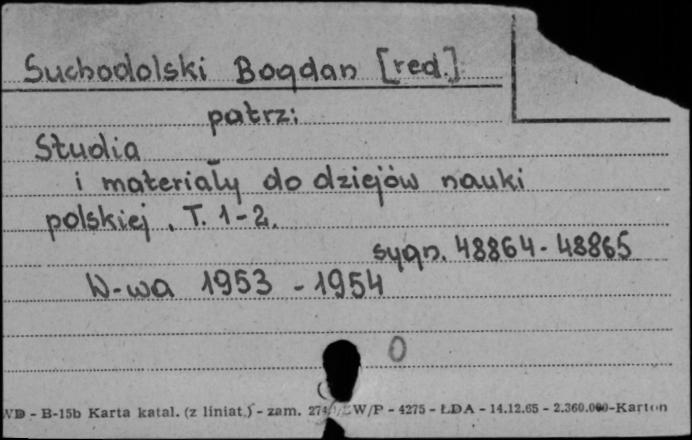 Suchodolski Bogdan [red.]
patrz:
Studia
i materiały do dziejów nauki
polskiej. T. 1-2.
sygn. 48864-48865
W-wa 1953 - 1954
0
WD - B-15b Karta katal. (z liniat.) - zam. W/P - 4275 - ŁDA - 14.12.65 - 2.360.000-Karton